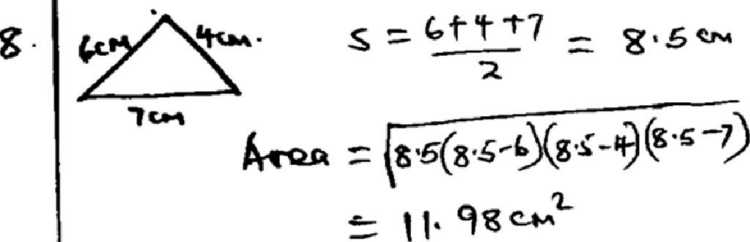 8.
6cm 4cm.
7cm
S = (6+4+7)/2 = 8.5 cm
Area = √(8.5(8.5-6)(8.5-4)(8.5-7))
= 11.98 cm²